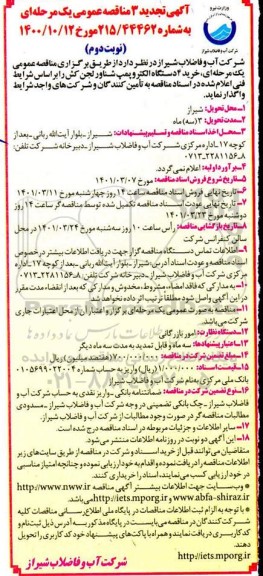 وزارت نیرو
شرکت آب و فاضلاب شیراز
آگهی تجدید ۳ مناقصه عمومی یک مرحله‌ای
به شماره ۲۱۵/۴۴۴۶۲ مورخ ۱۴۰۰/۱۰/۱۲
(نوبت دوم)
شرکت آب و فاضلاب شیراز در نظر دارد از طریق برگزاری مناقصه عمومی
یک مرحله‌ای، خرید ۲ دستگاه الکتروپمپ شناور لجن کش را بر اساس شرایط
فنی اعلام شده در اسناد مناقصه به تأمین کنندگان و شرکت‌های واجد شرایط
واگذار نماید.
۱- محل تحویل: شیراز
۲- مدت تحویل: ۳ (سه) ماه
۳- محل اخذ اسناد مناقصه و تسلیم پیشنهادات: شیراز - بلوار آیت الله ربانی - بعد از
کوچه ۱۷ - اداره مرکزی شرکت آب و فاضلاب شیراز - دبیرخانه شرکت تلفن:
۸-۳۲۲۸۱۱۵۶-۰۷۱۳
۴- برآورد اولیه: اعلام نمی‌گردد.
۵- تاریخ شروع فروش اسناد مناقصه: مورخ ۱۴۰۱/۰۳/۰۷
۶- تاریخ نهایی فروش اسناد مناقصه ساعت ۱۴ روز چهارشنبه مورخ ۱۴۰۱/۰۳/۱۱
۷- تاریخ نهایی عودت اسناد مناقصه تکمیل شده توسط مناقصه گر ساعت ۱۴ روز
دوشنبه مورخ ۱۴۰۱/۰۳/۲۳
۸- تاریخ بازگشایی مناقصه: رأس ساعت ۱۰ روز سه‌شنبه مورخ ۱۴۰۱/۰۳/۲۴ در محل
سالن کنفرانس شرکت
۹- اطلاعات تماس دستگاه مناقصه گزار جهت دریافت اطلاعات بیشتر در خصوص
اسناد مناقصه و عودت اسناد آدرس: شیراز - بلوار آیت الله ربانی - بعد از کوچه ۱۷ - اداره
مرکزی شرکت آب و فاضلاب شیراز - دبیرخانه شرکت تلفن:
۱۰- به مدارکی که فاقد امضاء، مشروط، مخدوش و مدارکی که بعد از انقضاء مدت مقرر
در این آگهی واصل شود مطلقا ترتیب اثر داده نخواهد شد
۱۱- مناقصه به صورت عمومی یک مرحله‌ای برگزار و اعتبار آن از محل اعتبارات جاری
شرکت می‌باشد.
۱۲- دستگاه نظارت: امور بازرگانی
۱۳- اعتبار پیشنهادها: سه ماه و قابل تمدید به مدت سه ماه دیگر
۱۴- مبلغ تضمین شرکت در مناقصه: ۷۰۰/۰۰۰/۰۰۰ (هفتصد میلیون) ریال
۱۵- قیمت اسناد: ۱/۰۰۰/۰۰۰ (ریال) واریز به حساب شماره
بانک ملی مرکزی به نام شرکت آب و فاضلاب شیراز
۱۶- نوع تضمین شرکت در مناقصه: ضمانتنامه بانکی - واریز نقدی به حساب شرکت آب و
فاضلاب شیراز - چک بانکی تضمینی در وجه شرکت آب و فاضلاب شیراز - مسدودی
مطالبات مناقصه گر در صورت وجود مطالبات از شرکت آب و فاضلاب شیراز
۱۷- سایر اطلاعات و جزئیات مربوطه در اسناد مناقصه درج شده است.
۱۸- این آگهی دو نوبت در روزنامه اطلاعات منتشر می‌شود
متقاضیان می‌توانند قبل از خرید اسناد و شرکت در مناقصه از طریق سایت‌های زیر
اطلاعات مناقصه را دریافت نموده و اقدام به خودارزیابی نموده و چنانچه امتیاز مناسبی
در خودارزیابی کسب می‌نمایند اسناد را خریداری کنند
آدرس وب جهت دریافت اطلاعات بیشتر آگهی مناقصه http://www.nww.ir
و www.abfa-shiraz.ir و http://iets.mporg.ir می‌باشد
* با توجه به الزام ثبت اطلاعات در پایگاه ملی اطلاع رسانی مناقصات کلیه
شرکت کنندگان در مناقصه می‌بایست در پایگاه مذکور به آدرس ذیل ثبت نام و
کد کاربری دریافت نمایند و همراه با پاکت‌های پیشنهادی خود کد کاربری را تحویل
دهند
http://iets.mporg.ir
شرکت آب و فاضلاب شیراز